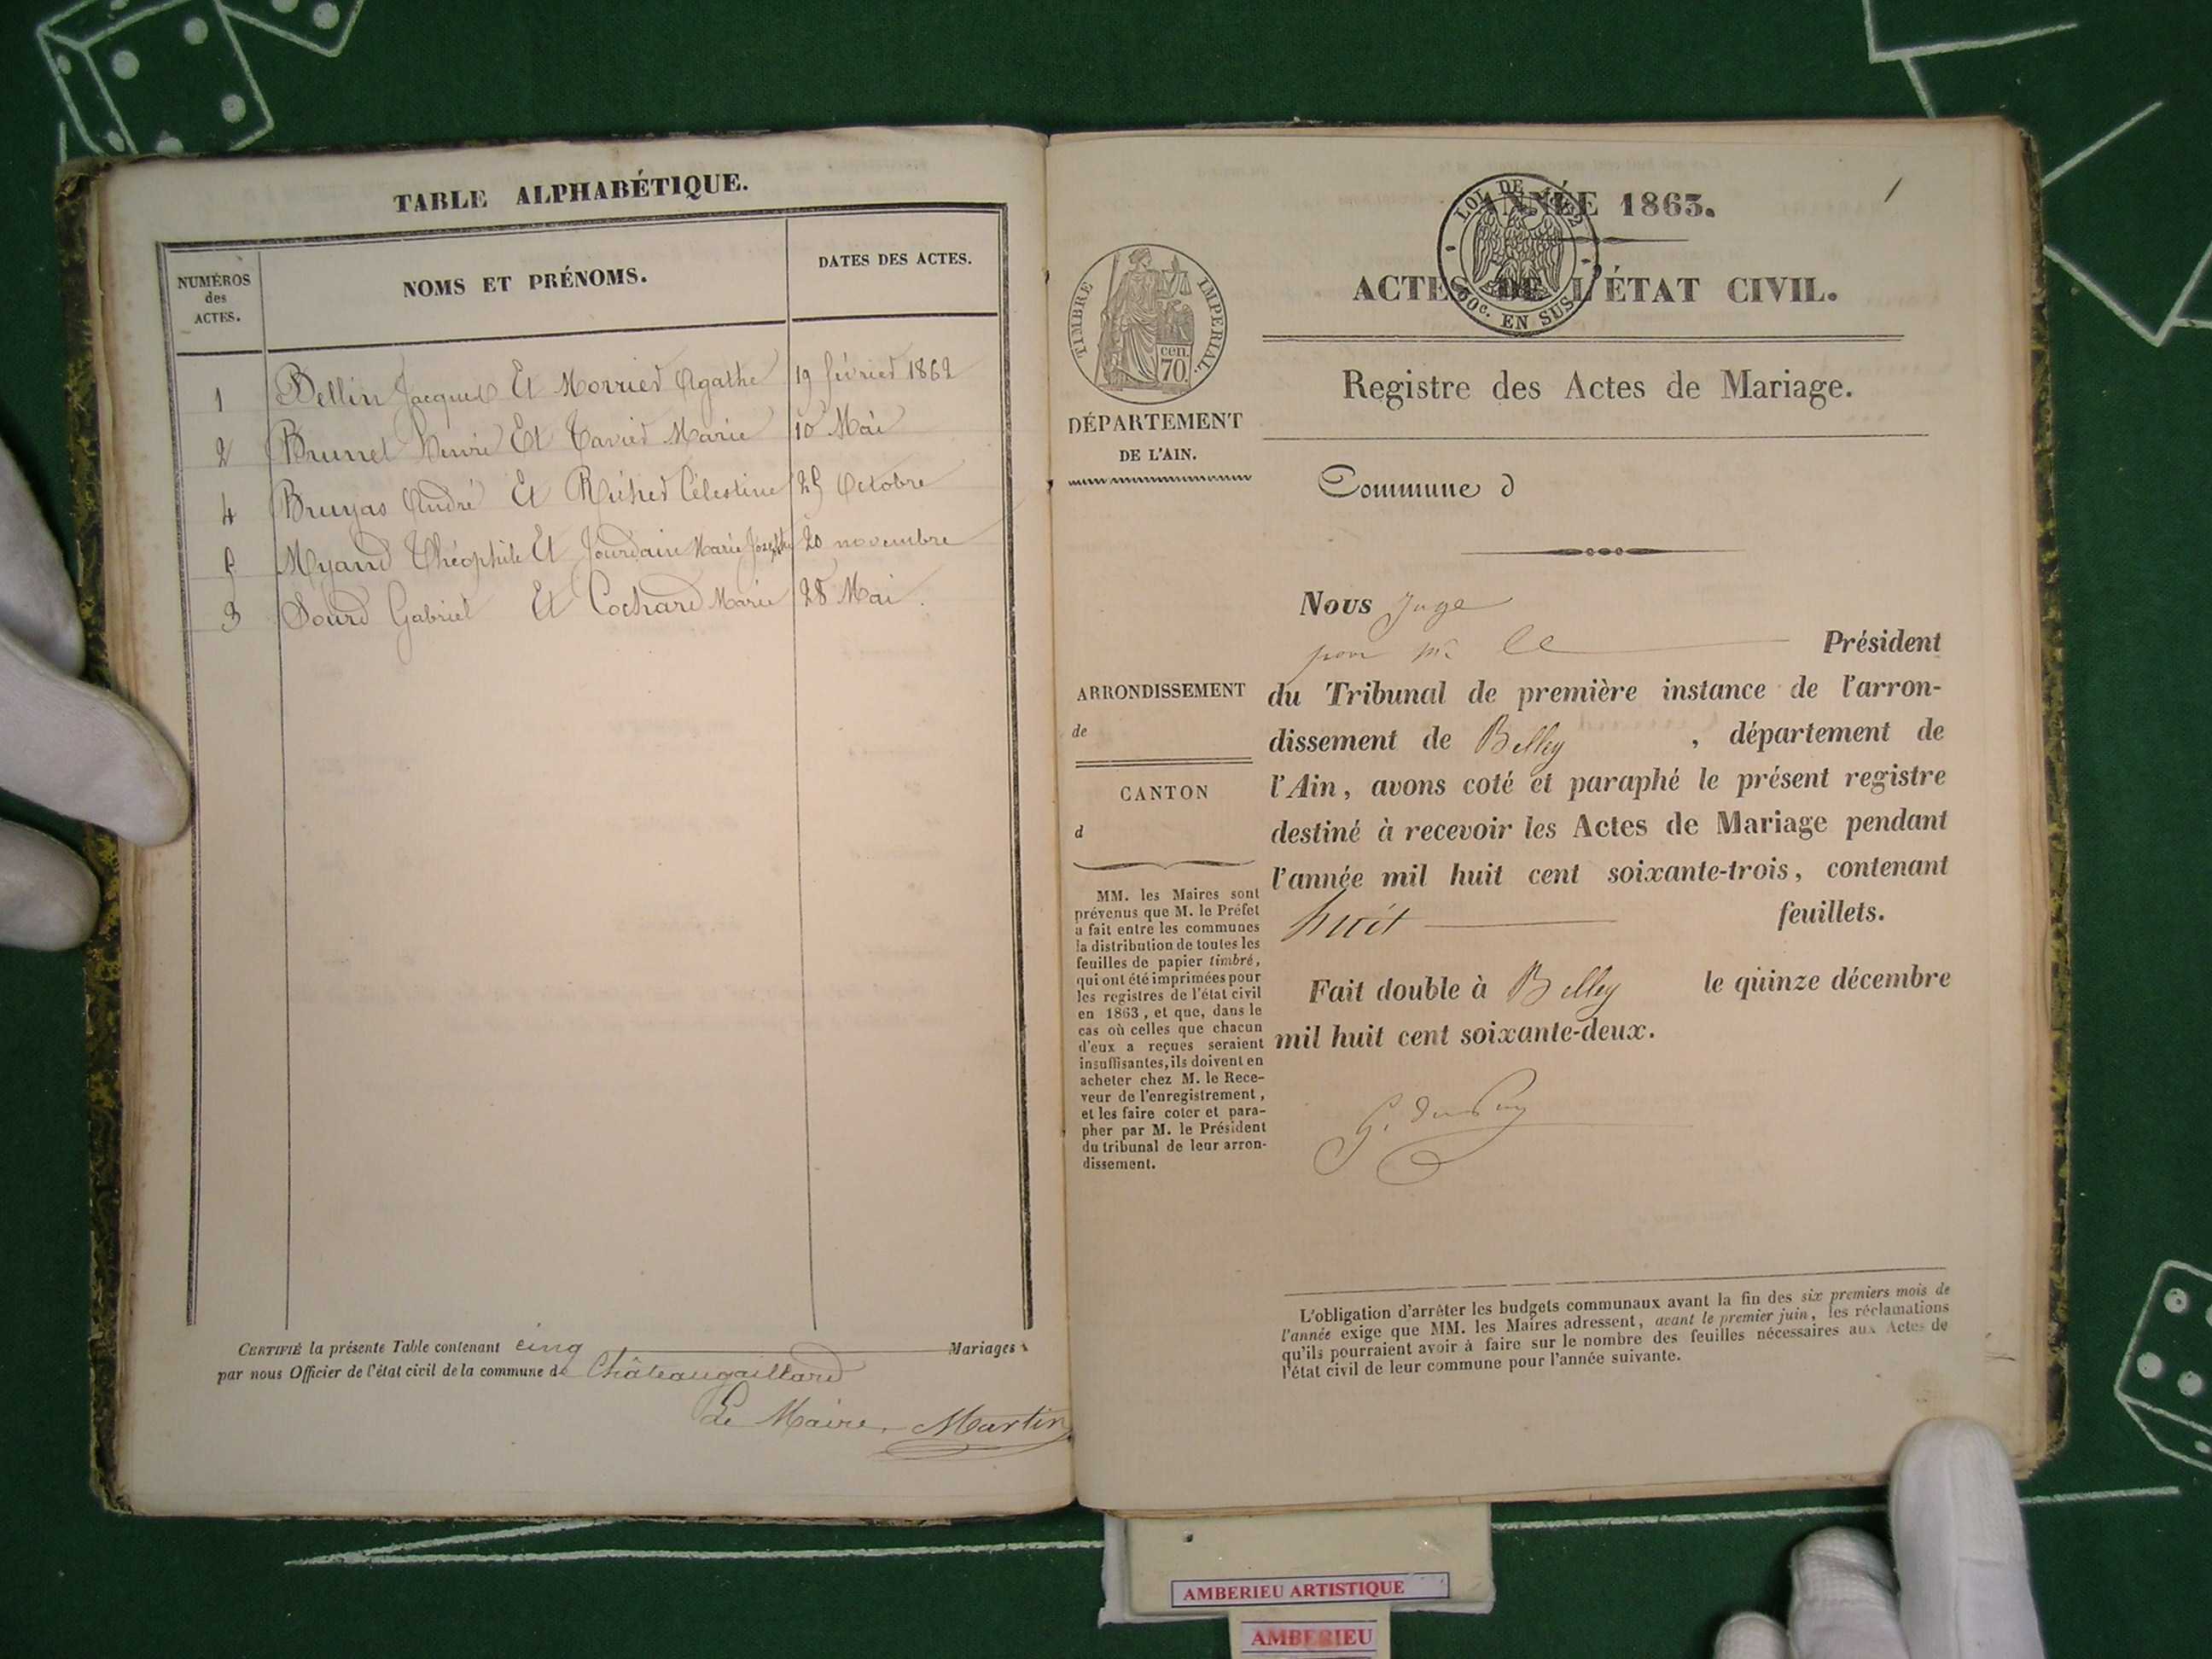 TABLE ALPHABÉTIQUE.
NUMÉROS
des
ACTES.
NOMS ET PRÉNOMS.
DATES DES ACTES.
1 Bellin Jacques Et Morrier Agathe 19 février 1862
2 Brunet Henri Et Tavier Marie 10 Mai
4 Bruyas André Et Célestine 25 Octobre
5 Myand Théophile Et Jourdain Marie Josephte 20 novembre
3 Sourd Gabriel Et Cochard Marie 28 Mai.
CERTIFIÉ la présente Table contenant cinq Mariages
par nous Officier de l'état civil de la commune de Châteaugaillard
Le Maire, Martin
1
ANNÉE 1863.
LOI DE 1862
50c. EN SUS
ACTES DE L'ÉTAT CIVIL.
TIMBRE IMPERIAL.
cen.
70.
Registre des Actes de Mariage.
DÉPARTEMENT
DE L'AIN.
Commune d
Nous Juge
pour Mr le Président
ARRONDISSEMENT
de
CANTON
d
du Tribunal de première instance de l'arron-
dissement de Belley , département de
l'Ain, avons coté et paraphé le présent registre
destiné à recevoir les Actes de Mariage pendant
l'année mil huit cent soixante-trois, contenant
huit feuillets.
Fait double à Belley le quinze décembre
mil huit cent soixante-deux.
MM. les Maires sont
prévenus que M. le Préfet
a fait entre les communes
la distribution de toutes les
feuilles de papier timbré,
qui ont été imprimées pour
les registres de l'état civil
en 1863, et que, dans le
cas où celles que chacun
d'eux a reçues seraient
insuffisantes, ils doivent en
acheter chez M. le Rece-
veur de l'enregistrement,
et les faire coter et para-
pher par M. le Président
du tribunal de leur arron-
dissement.
L'obligation d'arrêter les budgets communaux avant la fin des six premiers mois de
l'année exige que MM. les Maires adressent, avant le premier juin, les réclamations
qu'ils pourraient avoir à faire sur le nombre des feuilles nécessaires aux Actes de
l'état civil de leur commune pour l'année suivante.
AMBERIEU ARTISTIQUE
AMBERIEU